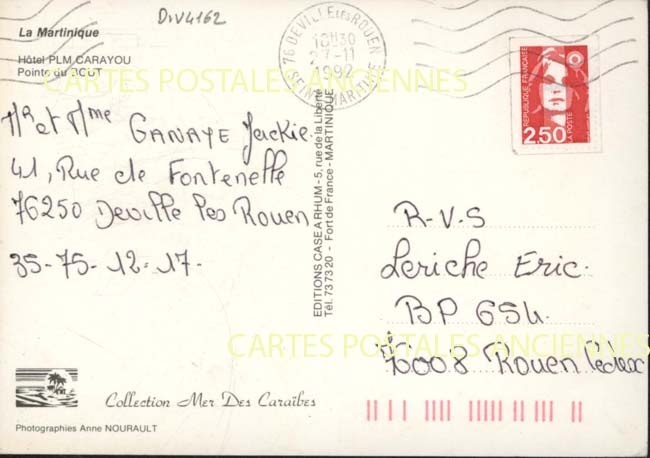 DIV4162
La Martinique
Hôtel PLM CARAYOU
Pointe du BOUT
CARTES POSTALES ANCIENNES
Mr et Mme GANAYE Jackie.
41, Rue de Fontenelle
76250 Deville les Rouen
35-75-12-17-
Collection Mer Des Caraïbes
Photographies Anne NOURAULT
EDITIONS CASE A RHUM - 5, rue de la Liberté
Tél. 73 73 20 - Fort de France - MARTINIQUE
76 DEVILLE LES ROUEN
18H30
7-11
92
SEINE MARITIME
REPUBLIQUE FRANCAISE
2,50
LA POSTE
R-V-S
Leriche Eric.
BP 654.
76008 Rouen Cédex
CARTES POSTALES ANCIENNES